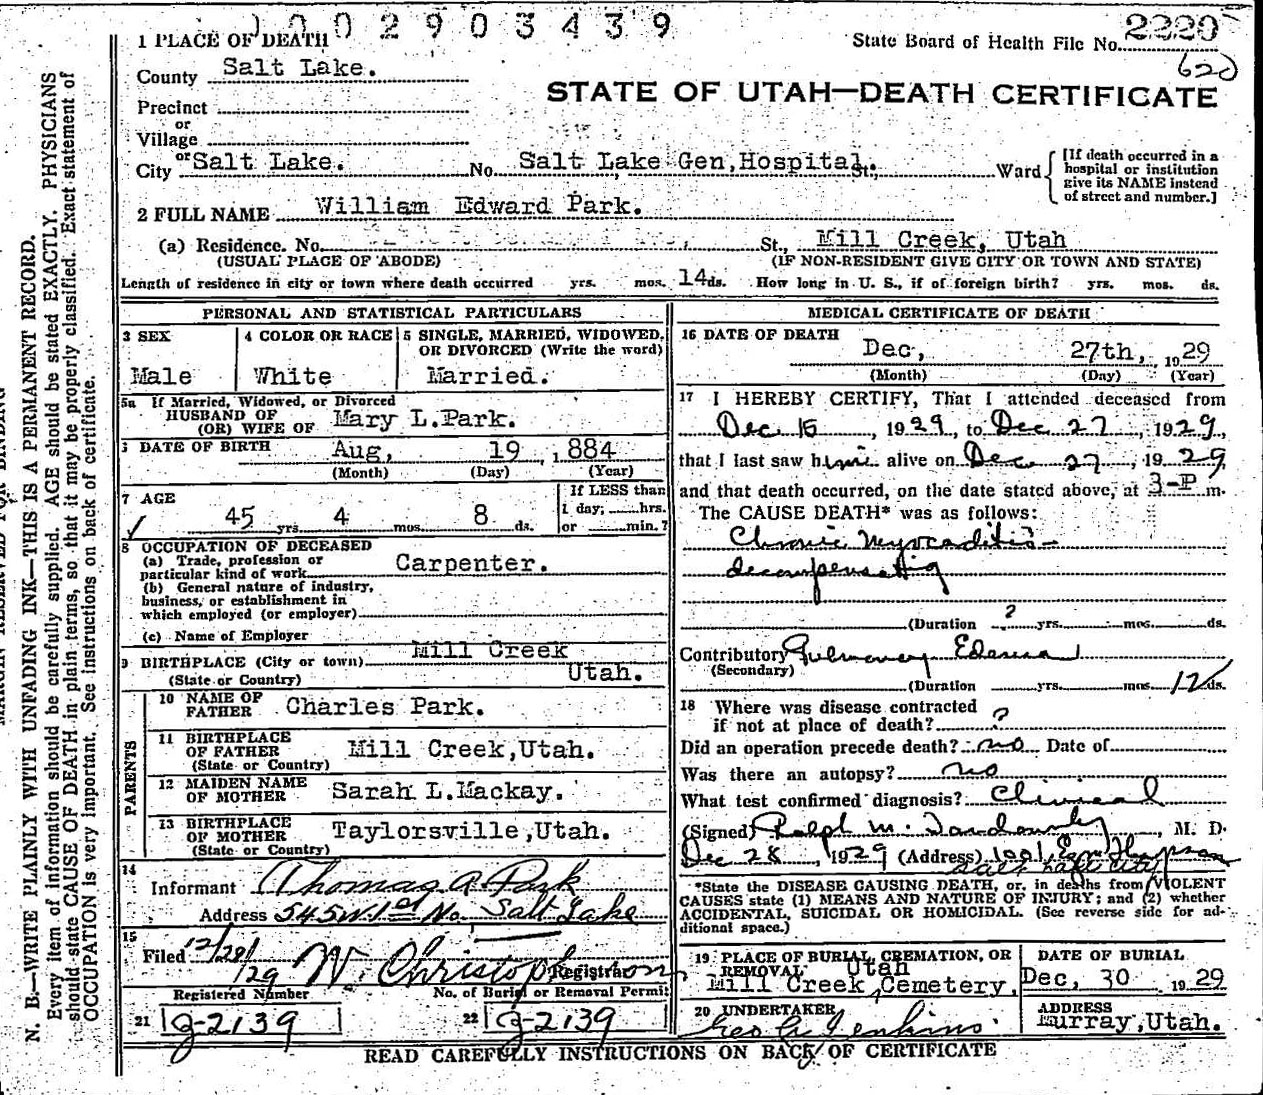 1002903439
2220
620
State Board of Health File No.
STATE OF UTAH—DEATH CERTIFICATE
1 PLACE OF DEATH
County Salt Lake.
Precinct
or
Village
or
City Salt Lake. No. Salt Lake Gen,Hospital. St., Ward
[If death occurred in a hospital or institution give its NAME instead of street and number.]
2 FULL NAME William Edward Park.
(a) Residence. No. St., Mill Creek, Utah
(USUAL PLACE OF ABODE) (IF NON-RESIDENT GIVE CITY OR TOWN AND STATE)
Length of residence in city or town where death occurred yrs. mos. 14 ds. How long in U. S., if of foreign birth? yrs. mos. ds.
PERSONAL AND STATISTICAL PARTICULARS
3 SEX Male
4 COLOR OR RACE White
5 SINGLE, MARRIED, WIDOWED, OR DIVORCED (Write the word) Married.
5a If Married, Widowed, or Divorced
HUSBAND OF
(OR) WIFE OF Mary L.Park.
6 DATE OF BIRTH Aug, 19 ,884
(Month) (Day) (Year)
7 AGE 45 yrs. 4 mos. 8 ds.
If LESS than
1 day, hrs.
or min.?
8 OCCUPATION OF DECEASED
(a) Trade, profession or
particular kind of work Carpenter.
(b) General nature of industry,
business, or establishment in
which employed (or employer)
(c) Name of Employer
9 BIRTHPLACE (City or town) Mill Creek
(State or Country) Utah.
PARENTS
10 NAME OF FATHER Charles Park.
11 BIRTHPLACE OF FATHER (State or Country) Mill Creek,Utah.
12 MAIDEN NAME OF MOTHER Sarah L.Mackay.
13 BIRTHPLACE OF MOTHER (State or Country) Taylorsville,Utah.
14
Informant Thomas A Park
Address 545 W. 1st No. Salt Lake
15
Filed 12/28/29 W. Christopherson Registrar
Registered Number No. of Burial or Removal Permit
21 J-2139 22 J-2139
MEDICAL CERTIFICATE OF DEATH
16 DATE OF DEATH
Dec, 27th, , 1929
(Month) (Day) (Year)
17 I HEREBY CERTIFY, That I attended deceased from
Dec 15, 1929, to Dec 27, 1929,
that I last saw him alive on Dec 27, 1929
and that death occurred, on the date stated above, at 3-P m.
The CAUSE DEATH* was as follows:
Chronic Myocaditis -
decompensating
(Duration ? yrs. mos. ds.
Contributory Pulmonary Edema
(Secondary)
(Duration yrs. mos. 12 ds.
18 Where was disease contracted
if not at place of death? ?
Did an operation precede death? no Date of
Was there an autopsy? no
What test confirmed diagnosis? Clinical
(Signed) Ralph M. , M. D.
Dec 28, 1929 (Address) 1001
Salt Lake City
*State the DISEASE CAUSING DEATH, or, in deaths from VIOLENT
CAUSES state (1) MEANS AND NATURE OF INJURY; and (2) whether
ACCIDENTAL, SUICIDAL OR HOMICIDAL. (See reverse side for ad-
ditional space.)
19 PLACE OF BURIAL, CREMATION, OR REMOVAL Utah
Mill Creek,Cemetery,
DATE OF BURIAL
Dec, 30 1929
20 UNDERTAKER
Geo A Jenkins.
ADDRESS
Murray,Utah.
READ CAREFULLY INSTRUCTIONS ON BACK OF CERTIFICATE
MARGIN RESERVED FOR BINDING
N. B.—WRITE PLAINLY WITH UNFADING INK—THIS IS A PERMANENT RECORD.
Every item of information should be carefully supplied. AGE should be stated EXACTLY. PHYSICIANS
should state CAUSE OF DEATH in plain terms, so that it may be properly classified. Exact statement of
OCCUPATION is very important. See instructions on back of certificate.